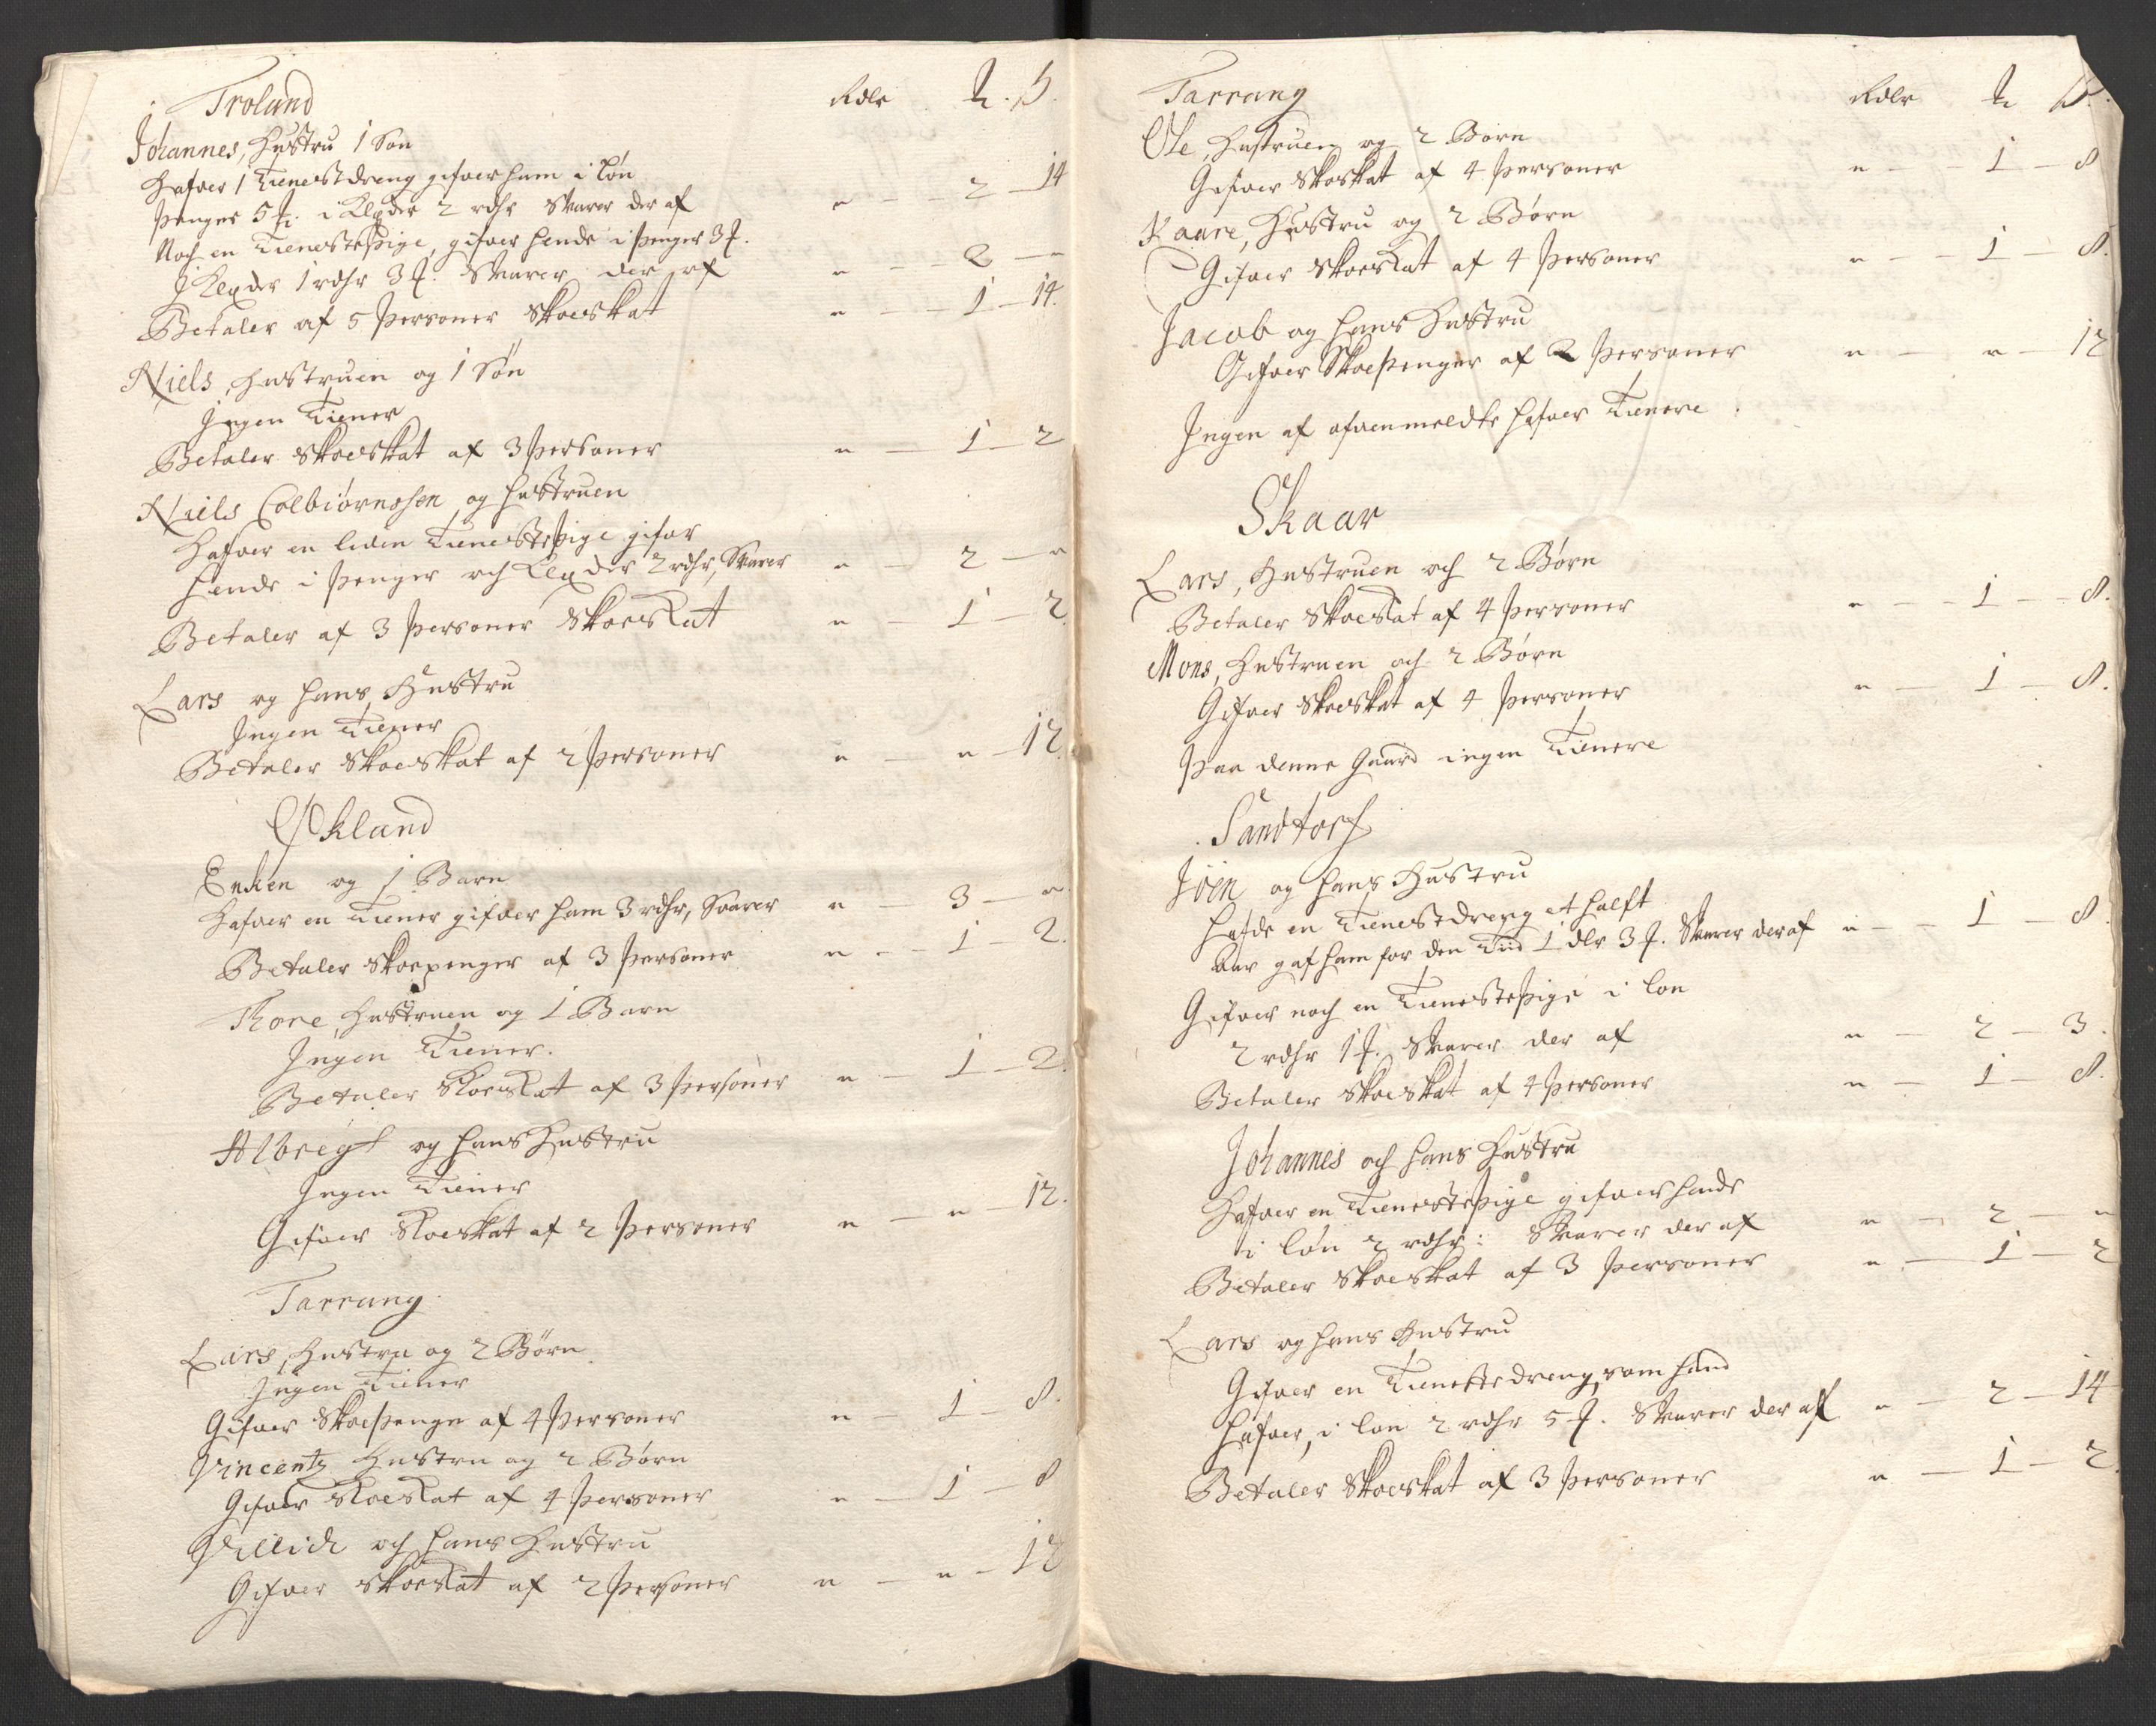 Troland Rdlr ꝉ. ß.
Johannes, Hustru 1 Søn
Hafver 1 Tienestdreng gifver ham i løn
penger 5 ꝉ. i Klæder 2 rdlr Svarer der af " — 2 — 14
Noch en Tienestepige, gifver hende i penger 3 ꝉ.
J Klæder 1 rdlr 3 ꝉ. Svarer der af " — 2 — "
Betaler af 5 Personer Skoeskat " — 1 — 14.
Niels, Hustruen og 1 Søn
Jngen Tiener
Betaler Skoeskat af 3 Personer " — 1 — 2
Niels Colbiørnssen og Hustruen
Hafver en liden Tienestepige gifver
hende i Penger och Klæder 2 rdlr, Svarer " — 2 — "
Betaler af 3 Personer Skoeskat " — 1 — 2
Lars og hans Hustru
Jngen Tiener
Betaler Skoeskat af 2 Personer " — " — 12
Økland
Enken og 1 Barn
Hafver en Tiener gifver ham 3 rdlr, Svarer " — 3 — "
Betaler Skoepenger af 3 Personer " — 1 2.
Thore, Hustruen og 1 Barn
Jngen Tiener.
Betaler Skoeskat af 3 Personer " — 1 — 2.
Albregt og hans Hustru
Jngen Tiener
Gifver Skoeskat af 2 Personer " — " — 12.
Tarrang
Lars, Hustru og 2 Børn
Jngen Tiener
Gifver Skoepenge af 4 Personer " — 1 — 8.
Vincentz Hustru og 2 Børn
Gifver Skoeskat af 4 Personer " — 1 — 8
Villich och hans Hustru
Gifver Skoeskat af 2 Personer " — " — 12
Tarrang Rdlr ꝉ ß.
Ole, Hustruen og 2 Børn
Gifver Skoskat af 4 Personer " — 1 — 8
Kaare, Hustru og 2 Børn
Gifver Skoeskat af 4 Personer " — 1 — 8.
Jacob og hans Hustru
Gifver Skoepenger af 2 Personer " — " — 12
Jngen af ofvenmeldte hafver Tienere.
Skaar
Lars, Hustruen och 2 Børn
Betaler Skoeskat af 4 Personer " — 1 — 8.
Mons, Hustruen och 2 Børn
Gifver Skoeskat af 4 Personer " — 1 — 8.
Paa denne Gaard ingen Tienere
Sandtorf
Jöen og hans Hustru
hafde en Tienestdreng et halft
aar gaf ham for den Tiid 1 dlr 3 ꝉ. Svarer der af " — 1 — 8.
Gifver noch en Tienestepige i løn
2 rdlr 1 ꝉ. Svarer der af " — 2 — 3.
Betaler Skoeskat af 4 Personer " — 1 — 8.
Johannes och hans Hustru
Hafver en Tienestepige gifver hende
i løn 2 rdlr: Svarer der af " — 2 — "
Betaler Skoeskat af 3 Personer " — 1 — 2
Lars og hans Hustru
Gifver en Tienestedreng, som hand
hafver, i løn 2 rdlr 5 ꝉ. Svarer der af " — 2 — 14
Betaler Skoeskat af 3 Personer " — 1 — 2.